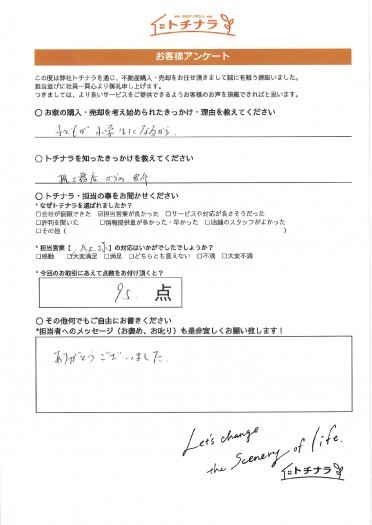 トチナラ
お客様アンケート
この度は弊社トチナラを通じ、不動産購入・売却をお任せ頂きまして誠に有難う御座いました。
担当並びに社員一同心より御礼申し上げます。
つきましては、より良いサービスをご提供できるようお客様のお声を頂戴できればと思います。
○ お家の購入・売却を考え始められたきっかけ・理由を教えてください
子どもが小学生になるから.
○ トチナラを知ったきっかけを教えてください
工務店からの紹介
○ トチナラ・担当の事をお聞かせください
* なぜトチナラを選ばれましたか？
□会社が信頼できた ☑担当営業が良かった □サービスや対応が良さそうだった
□評判を聞いた □情報提供量が多かった・早かった □店舗のスタッフがよかった
□その他（ ）
* 担当営業【 】の対応はいかがでしたでしょうか？
□感動 □大変満足 □満足 □どちらとも言えない □不満 □大変不満
* 今回のお取引にあえて点数をお付け頂くと？
95. 点
○ その他何でもご自由にお書きください
*担当者へのメッセージ（お褒め、お叱り）も是非宜しくお願い致します！
ありがとうございました.
Let's change
the Scenery of life.
トチナラ